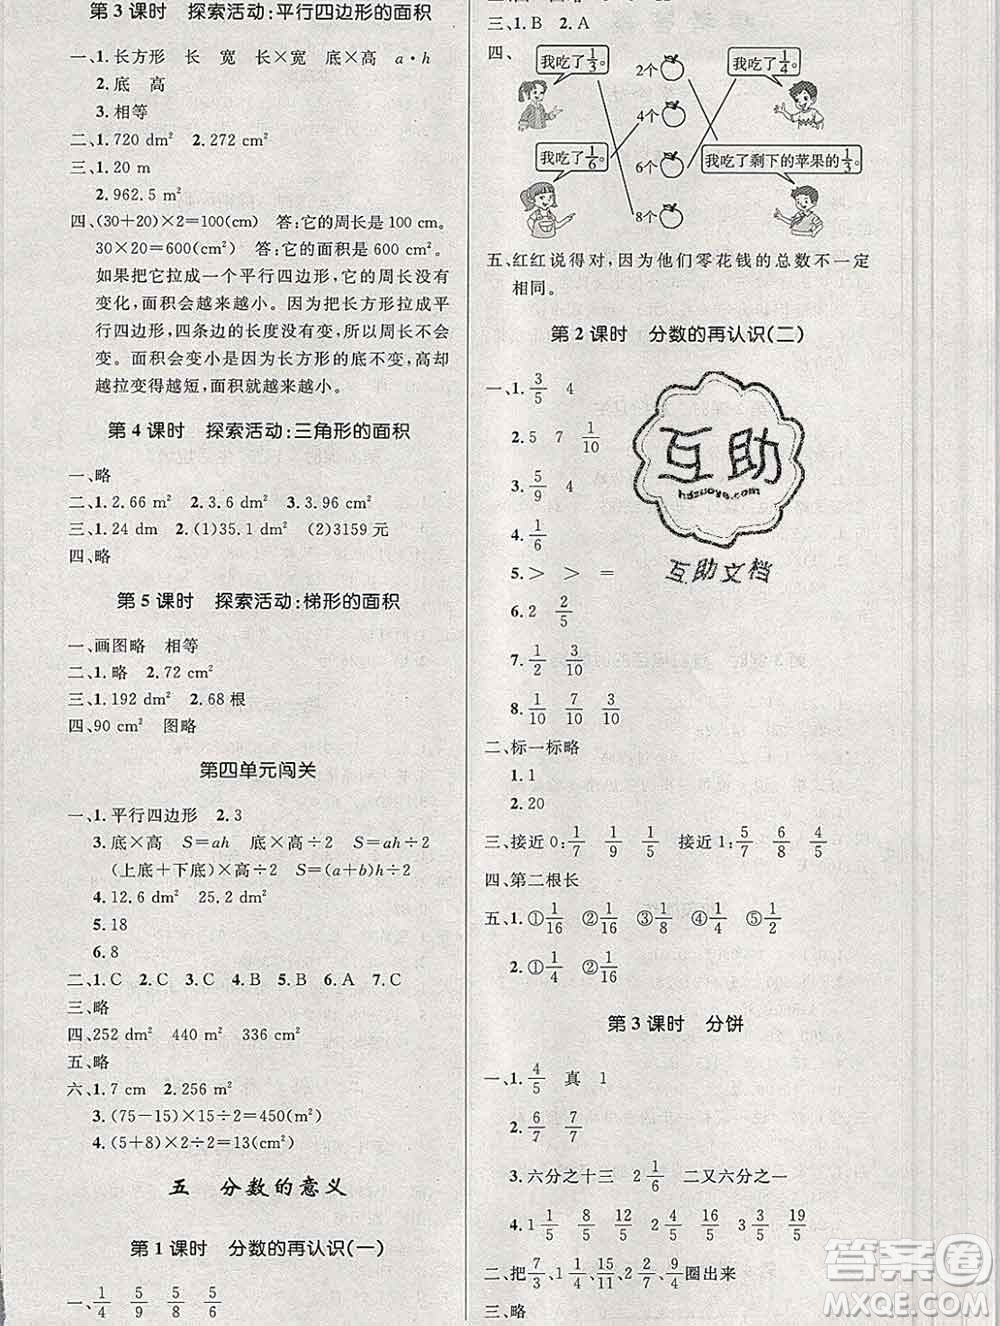 第3课时 探索活动:平行四边形的面积
一、1.长方形 长 宽 长×宽 底×高 a·h
2.底 高
3.相等
二、1.720 dm² 2.272 cm²
三、1.20 m
2.962.5 m²
四、(30+20)×2=100(cm) 答:它的周长是 100 cm.
30×20=600(cm²) 答:它的面积是 600 cm².
如果把它拉成一个平行四边形,它的周长没有
变化,面积会越来越小。因为把长方形拉成平
行四边形,四条边的长度没有变,所以周长不会
变。面积会变小是因为长方形的底不变,高却
越拉变得越短,面积就越来越小。
第4课时 探索活动:三角形的面积
一、略
二、1.2.66 m² 2.3.6 dm² 3.3.96 cm²
三、1.24 dm 2.(1)35.1 dm² (2)3159 元
四、略
第5课时 探索活动:梯形的面积
一、画图略 相等
二、1.略 2.72 cm²
三、1.192 dm² 2.68 根
四、90 cm² 图略
第四单元闯关
一、1.平行四边形 2.3
3.底×高 S=ah 底×高÷2 S=ah÷2
(上底+下底)×高÷2 S=(a+b)h÷2
4.12.6 dm² 25.2 dm²
5.18
6.8
二、1.C 2.C 3.C 4.B 5.B 6.A 7.C
三、略
四、252 dm² 440 m² 336 cm²
五、略
六、1.7 cm 2.256 m²
3.(75-15)×15÷2=450(m²)
4.(5+8)×2÷2=13(cm²)
五 分数的意义
第1课时 分数的再认识(一)
一、1/4 5/9 5/8 5/6
三、1.B 2.A
四、
我吃了1/3。 2个 我吃了1/4。
4个
我吃了1/6。 6个 我吃了剩下的苹果的1/3。
8个
五、红红说得对,因为他们零花钱的总数不一定
相同。
第2课时 分数的再认识(二)
一、1.3/5 4
2.5 7 1/10
3.5/9 4
4.1/6
5.> > =
6.2 2/5
7.1/10 3/10
8.1/10 7/10 3/10
二、标一标略
1.1
2.20
三、接近 0:1/7 1/9 1/5 接近 1:5/7 6/8 4/5
四、第二根长
五、1.①1/16 ②1/16 ③1/8 ④1/4 ⑤1/2
2.①1/4 ②1/16
第3课时 分饼
一、1.4/5 真 1
2.6/7 7/7
3.六分之十三 2 1/6 二又六分之一
4.1/5 8/5 1/4 5/4 3/5 19/5
二、把7/3、15/11、2/2、9/4圈出来
三、略
互助
hdzuoye.com
互助文档
答案圈
MXQE.COM